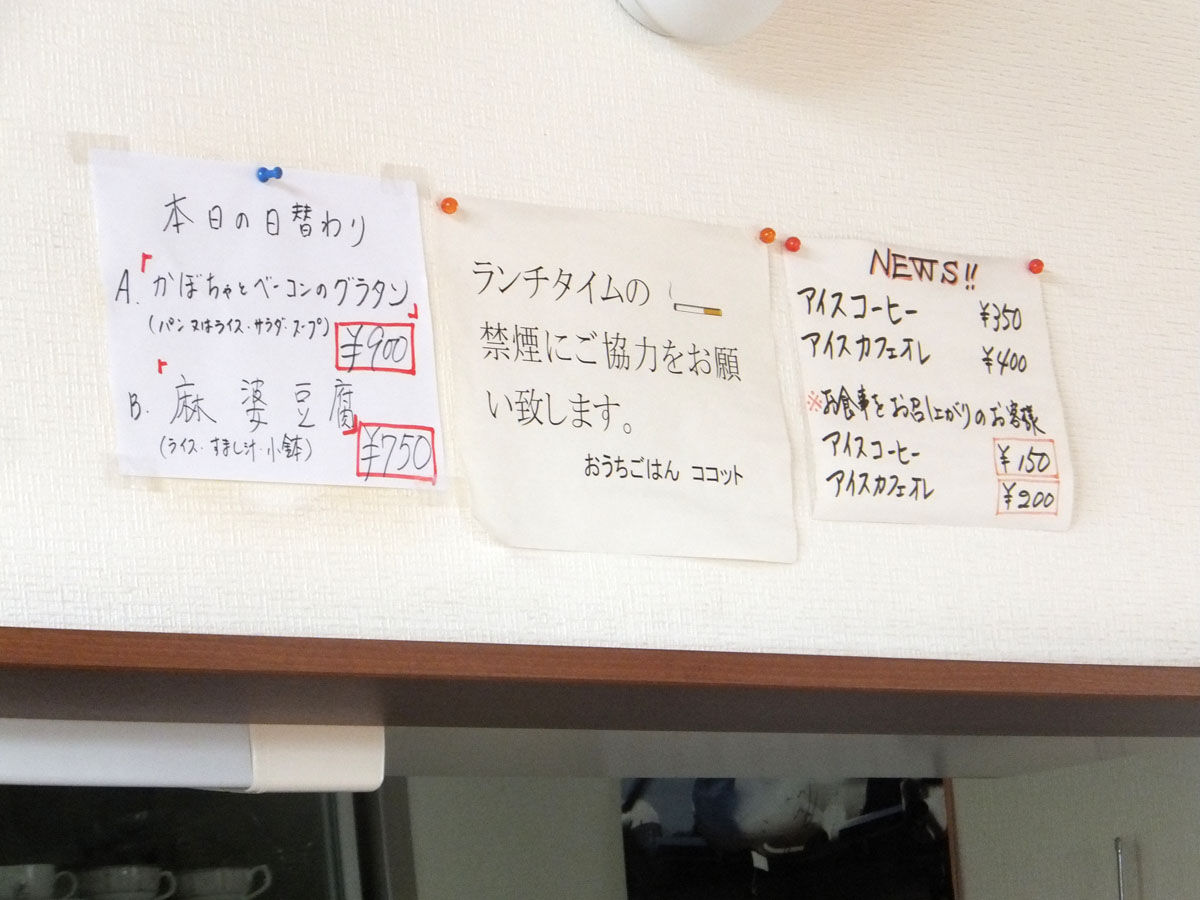 本日の日替わり
A.「かぼちゃとベーコンのグラタン」
(パン又はライス・サラダ・スープ)
¥900
B.「麻婆豆腐」
(ライス・すまし汁・小鉢)
¥750
ランチタイムの
禁煙にご協力をお願
い致します。
おうちごはん ココット
NEWS!!
アイスコーヒー ¥350
アイスカフェオレ ¥400
※お食事をお召し上がりのお客様
アイスコーヒー ¥150
アイスカフェオレ ¥200